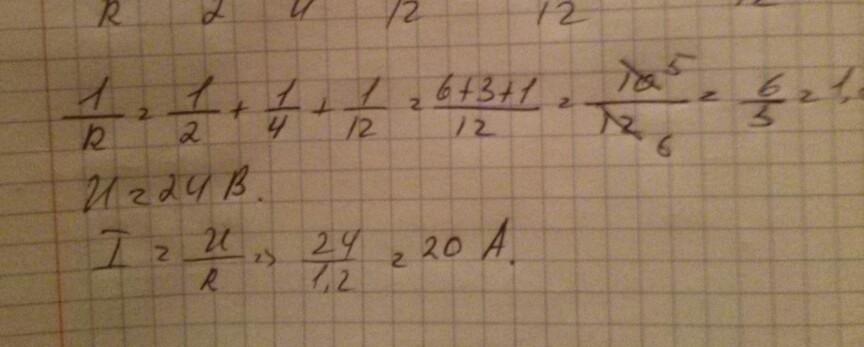 R 2 4 12 12
1/R = 1/2 + 1/4 + 1/12 = 6+3+1/12 = 10 5/12 6 = 6/5 = 1,
U = 24 В.
I = U/R => 24/1,2 = 20 А.